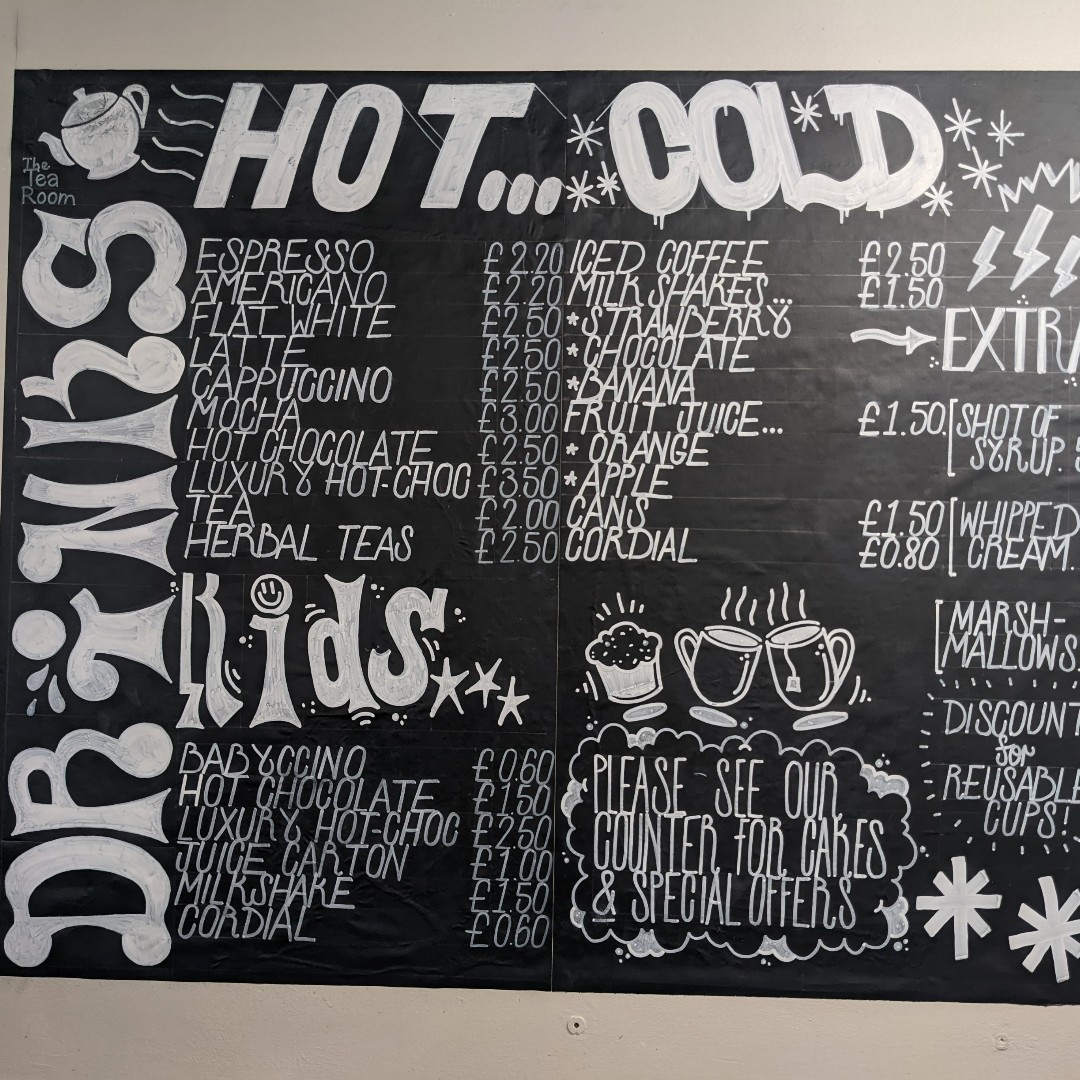 The
Tea
Room
DRiNKS
HOT...
ESPRESSO £2.20
AMERICANO £2.20
FLAT WHITE £2.50
LATTE £2.50
CAPPUCCINO £2.50
MOCHA £3.00
HOT CHOCOLATE £2.50
LUXURY HOT-CHOC £3.50
TEA £2.00
HERBAL TEAS £2.50
Kids
BABYCCINO £0.60
HOT CHOCOLATE £1.50
LUXURY HOT-CHOC £2.50
JUICE CARTON £1.00
MILKSHAKE £1.50
CORDIAL £0.60
COLD
ICED COFFEE £2.50
MILKSHAKES... £1.50
*STRAWBERRY
*CHOCOLATE
*BANANA
FRUIT JUICE... £1.50
*ORANGE
*APPLE
CANS £1.50
CORDIAL £0.80
PLEASE SEE OUR
COUNTER FOR CAKES
& SPECIAL OFFERS
EXTRA
SHOT OF
SYRUP.
WHIPPED
CREAM.
MARSH-
MALLOWS.
DISCOUNT
for
REUSABLE
CUPS!